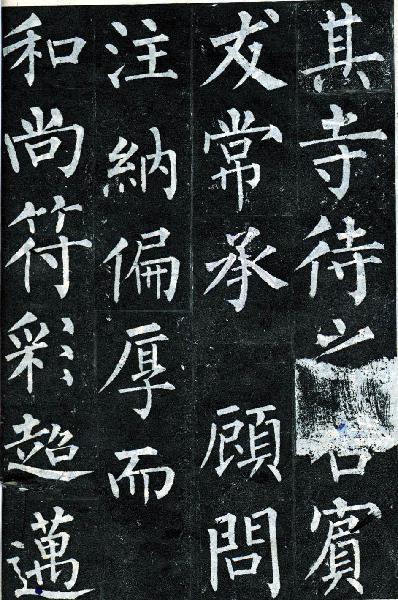 其寺待賓
友常承顧問
注納偏厚而
和尚符彩超邁